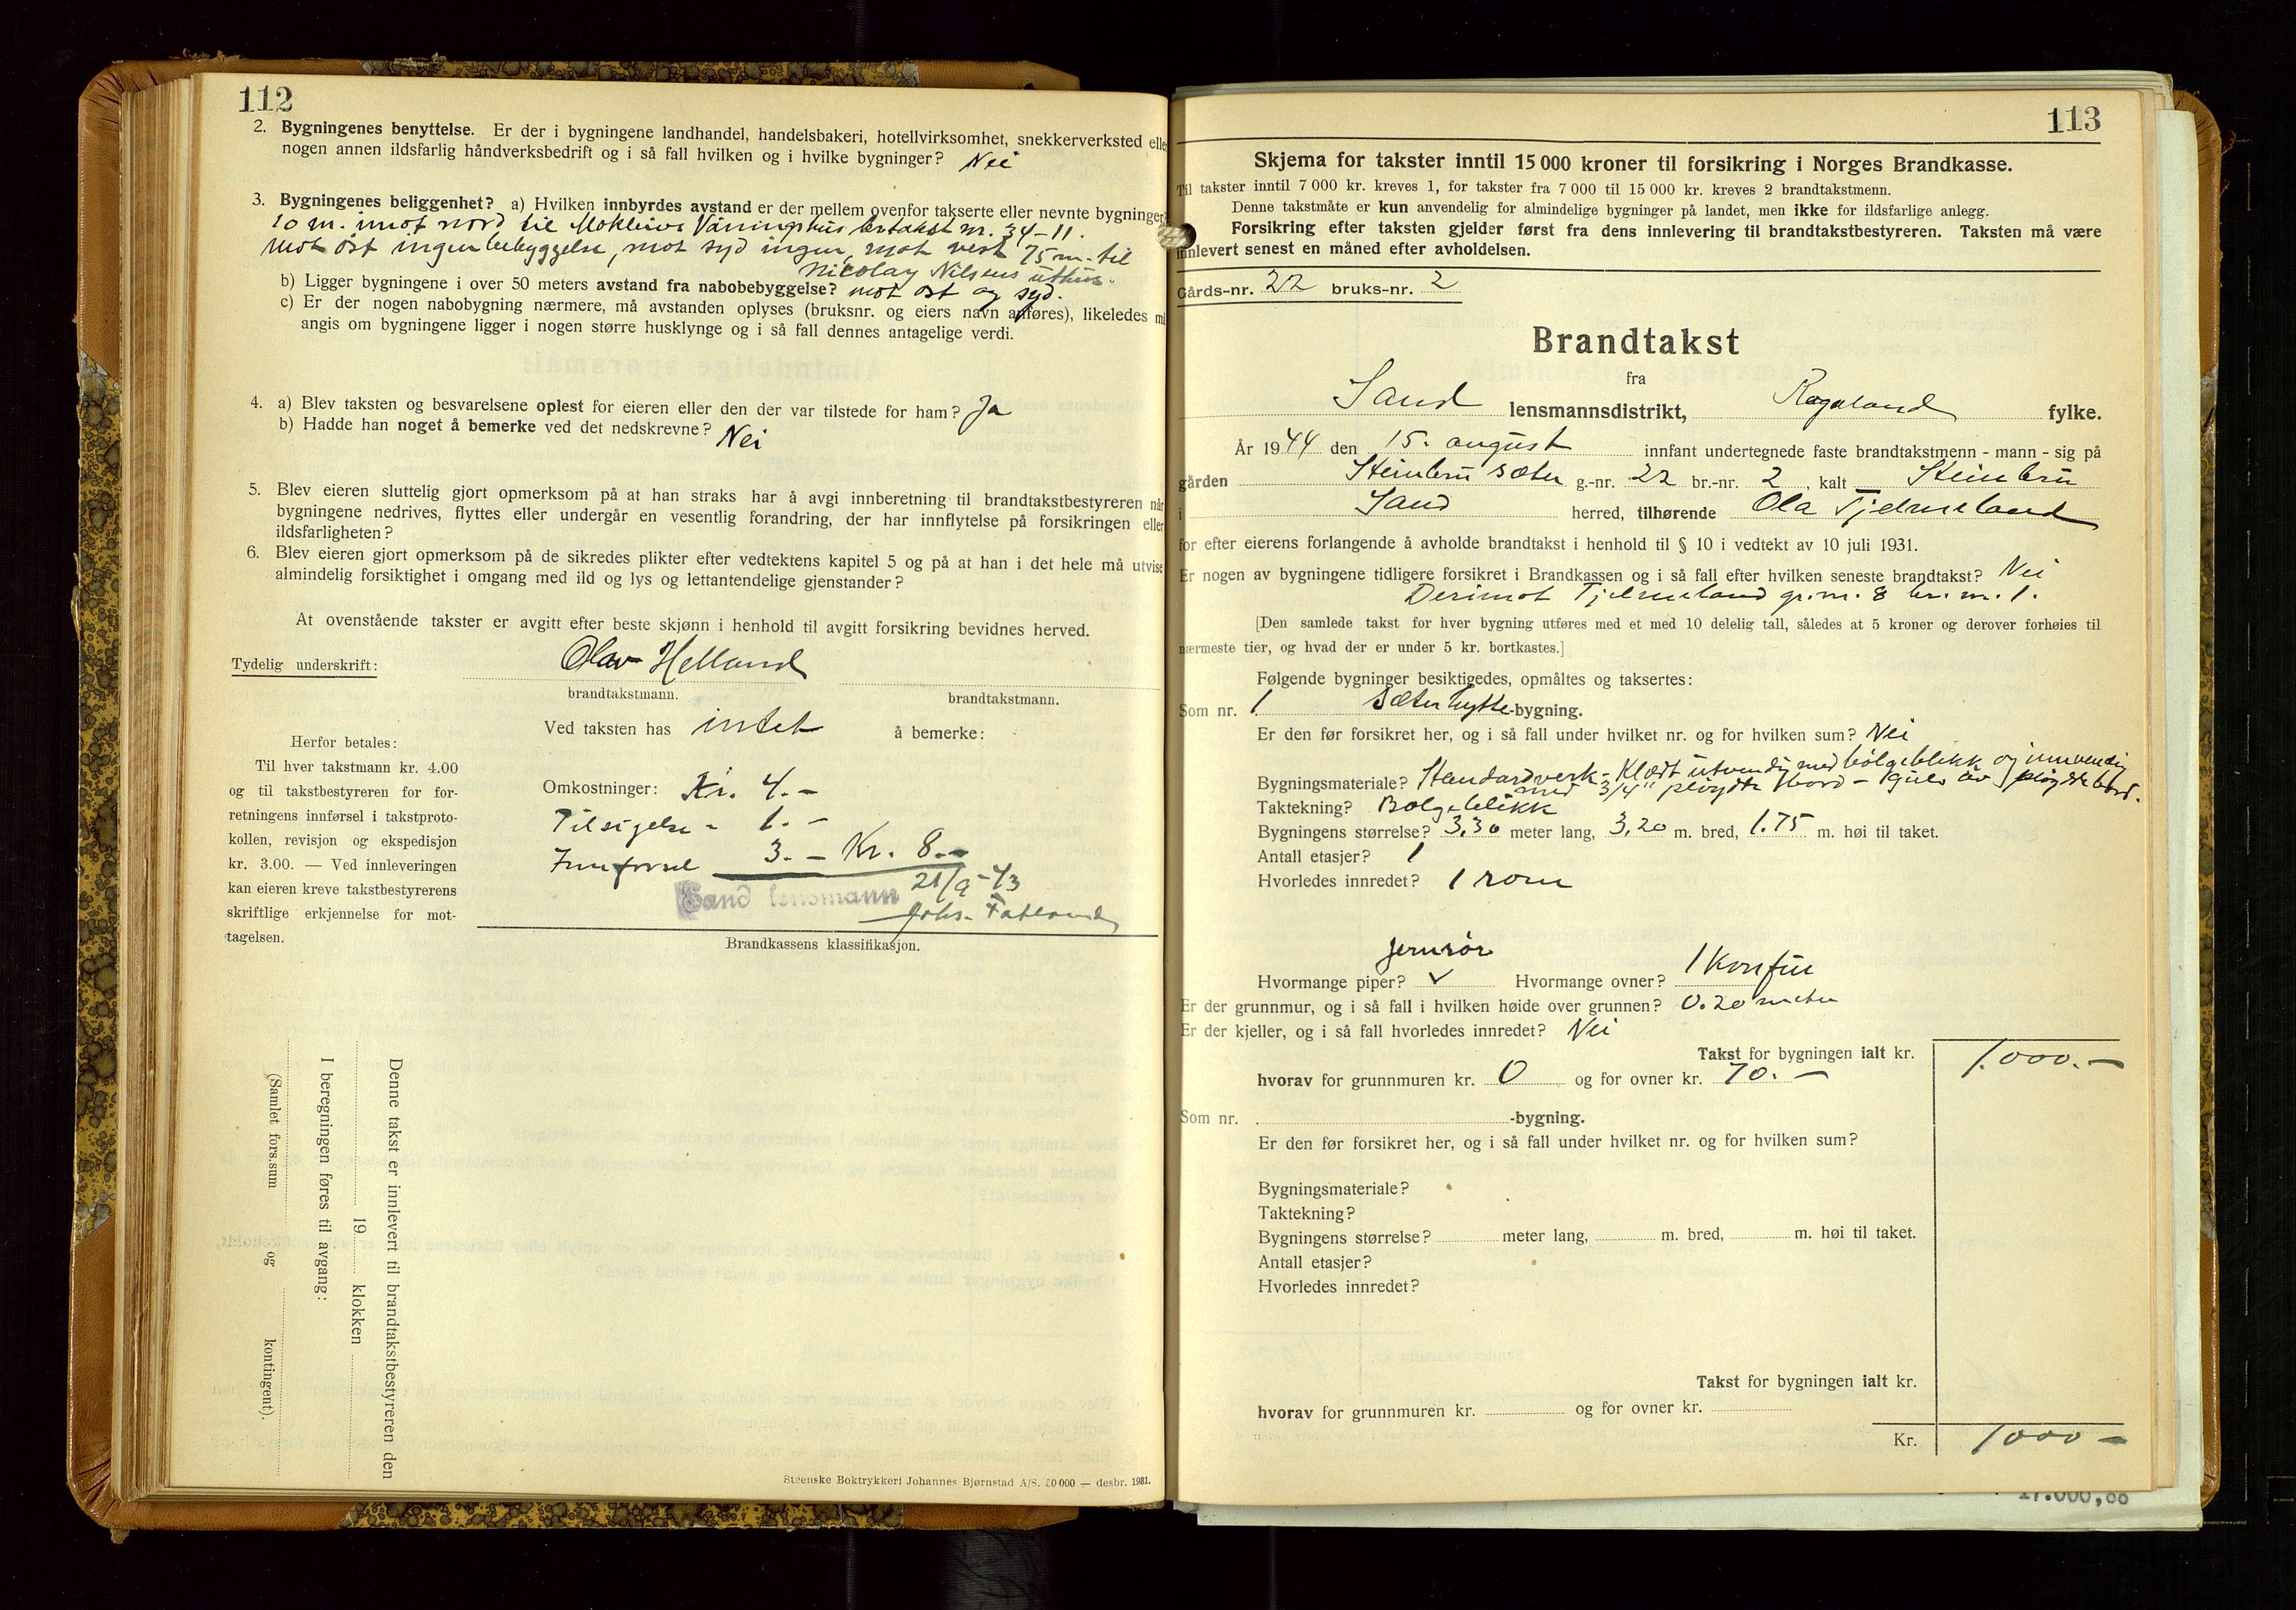 112
2. Bygningenes benyttelse. Er der i bygningene landhandel, handelsbakeri, hotellvirksomhet, snekkerverksted elle
nogen annen ildsfarlig håndverksbedrift og i så fall hvilken og i hvilke bygninger? Nei
3. Bygningenes beliggenhet? a) Hvilken innbyrdes avstand er der mellem ovenfor takserte eller nevnte bygninger?
10 m. imot nord til Våningshus br.takst nr. 34-11.
Mot øst ingen bebyggelse, mot syd ingen, mot vest 75 m. til
Nicolay Nilsens uthus.
b) Ligger bygningene i over 50 meters avstand fra nabobebyggelse? mot øst og syd.
c) Er der nogen nabobygning nærmere, må avstanden oplyses (bruksnr. og eiers navn anføres), likeledes m
angis om bygningene ligger i nogen større husklynge og i så fall dennes antagelige verdi.
4. a) Blev taksten og besvarelsene oplest for eieren eller den der var tilstede for ham? Ja
b) Hadde han noget å bemerke ved det nedskrevne? Nei
5. Blev eieren sluttelig gjort opmerksom på at han straks har å avgi innberetning til brandtakstbestyreren når
bygningene nedrives, flyttes eller undergår en vesentlig forandring, der har innflytelse på forsikringen eller
ildsfarligheten?
6. Blev eieren gjort opmerksom på de sikredes plikter efter vedtektens kapitel 5 og på at han i det hele må utvise
almindelig forsiktighet i omgang med ild og lys og lettantendelige gjenstander?
At ovenstående takster er avgitt efter beste skjønn i henhold til avgitt forsikring bevidnes herved.
Tydelig underskrift: Olav Helland
brandtakstmann. brandtakstmann.
Ved taksten has intet å bemerke:
Herfor betales:
Til hver takstmann kr. 4.00
og til takstbestyreren for for-
retningens innførsel i takstproto-
kollen, revisjon og ekspedisjon
kr. 3.00. — Ved innleveringen
kan eieren kreve takstbestyrerens
skriftlige erkjennelse for mot-
tagelsen.
Omkostninger: Kr. 4.-
Tilsigelse - 1.-
Innførsel 3.- Kr. 8.-
21/9-43
Sand lensmann
Johs. Fatland
Brandkassens klassifikasjon.
Denne takst er innlevert til brandtakstbestyreren den
19 klokken
I beregningen føres til avgang:
(Samlet fors.sum og kontingent).
Steenske Boktrykkeri Johannes Bjørnstad A/S. 50 000 — desbr. 1931.
113
Skjema for takster inntil 15 000 kroner til forsikring i Norges Brandkasse.
Til takster inntil 7 000 kr. kreves 1, for takster fra 7 000 til 15 000 kr. kreves 2 brandtakstmenn.
Denne takstmåte er kun anvendelig for almindelige bygninger på landet, men ikke for ildsfarlige anlegg.
Forsikring efter taksten gjelder først fra dens innlevering til brandtakstbestyreren. Taksten må være
innlevert senest en måned efter avholdelsen.
Gårds-nr. 22 bruks-nr. 2
Brandtakst
fra
Sand lensmannsdistrikt, Rogaland fylke.
År 1944 den 15. august innfant undertegnede faste brandtakstmenn - mann - sig på
gården Steinbru sæter g.-nr. 22 br.-nr. 2, kalt Steinbru
i Sand herred, tilhørende Ola Tjelmeland
for efter eierens forlangende å avholde brandtakst i henhold til § 10 i vedtekt av 10 juli 1931.
Er nogen av bygningene tidligere forsikret i Brandkassen og i så fall efter hvilken seneste brandtakst? Nei
Derimot Tjelmeland gr.nr. 8 br.nr. 1.
[Den samlede takst for hver bygning utføres med et med 10 delelig tall, således at 5 kroner og derover forhøies til
nærmeste tier, og hvad der er under 5 kr. bortkastes.]
Følgende bygninger besiktigedes, opmåltes og taksertes:
Som nr. 1 Sæterhytte-bygning.
Er den før forsikret her, og i så fall under hvilket nr. og for hvilken sum? Nei
Bygningsmateriale? Standardverk - Klædt utvendig med bølgeblikk og innvendig
med 3/4" pløyde bord - gulv av pløyde bord.
Taktekning? Bølgeblikk
Bygningens størrelse? 3,30 meter lang, 3,20 m. bred, 1.75 m. høi til taket.
Antall etasjer? 1
Hvorledes innredet? 1 rom
jernrør
Hvormange piper? Hvormange ovner? 1 Komfur
Er der grunnmur, og i så fall i hvilken høide over grunnen? 0.20 meter
Er der kjeller, og i så fall hvorledes innredet? Nei
Takst for bygningen ialt kr. 1.000.-
hvorav for grunnmuren kr. 0 og for ovner kr. 70.-
Som nr. -bygning.
Er den før forsikret her, og i så fall under hvilket nr. og for hvilken sum?
Bygningsmateriale?
Taktekning?
Bygningens størrelse? meter lang, m. bred, m. høi til taket.
Antall etasjer?
Hvorledes innredet?
Takst for bygningen ialt kr.
hvorav for grunnmuren kr. og for ovner kr.
Kr. 1000-